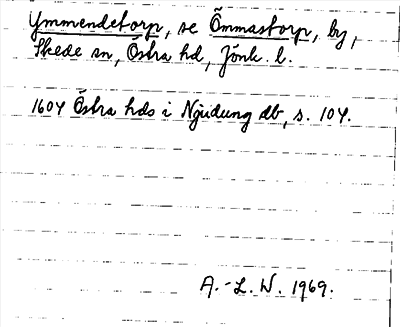 Ymmendetorp, se Ömmastorp, by,
Skede sn, Östra hd, Jönk. l.
1604 Östra hds i Njudung db, s. 104.
A.-L. W. 1969.